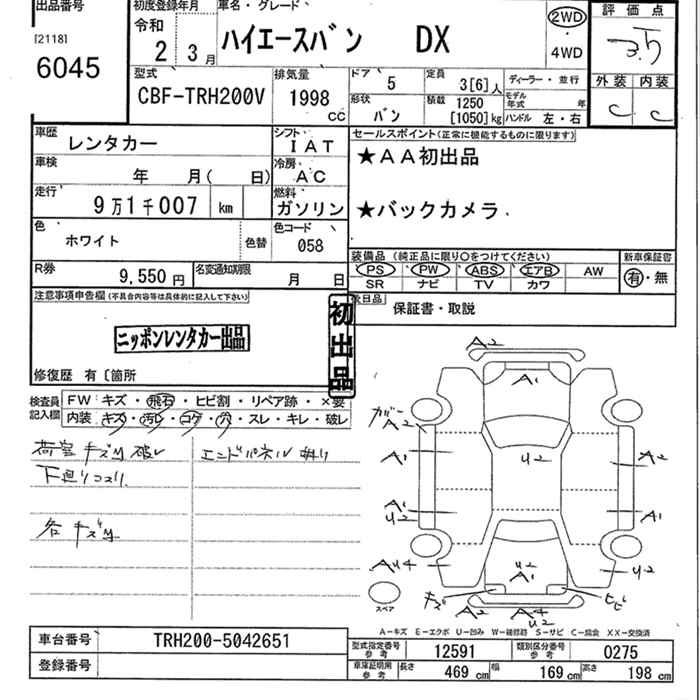 出品番号
[2118]
6045
初度登録年月
令和
2 3月
車名・グレード
ハイエースバン DX
2WD
4WD
評価点
3.5
外装 内装
C C
型式
CBF-TRH200V
排気量
1998
CC
ドア
5
定員
3[6]人
形状
バン
積載
1250
[1050]kg
ディーラー・並行
モデル年式 年
ハンドル 左・右
車歴
レンタカー
シフト
IAT
車検 年 月( 日)
冷房
AC
走行
9万1千007 km
燃料
ガソリン
色
ホワイト
色替
色コード
058
R券
9,550 円
名変通知期限
月 日
セールスポイント(正常に機能するものに限ります)
★AA初出品
★バックカメラ.
装備品(純正品に限り〇をつけてください)
PS PW ABS エアB AW
SR ナビ TV カワ
新車保証書
有・無
後日品
保証書・取説
注意事項申告欄(不具合内容等は具体的に記入して下さい)
ニッポンレンタカー出品
初出品
修復歴 有〔箇所
検査員記入欄
FW キズ・飛石・ヒビ割・リペア跡・×要
内装 キズ・汚レ・コゲ・穴・スレ・キレ・破レ
荷室キズ凹破レ
エンドパネル凹
下廻リコスリ
各キズ凹
A2
A1
A2
A1
U2
A2
A1
U2
A1
AU4
U2
U2
A1
キズ
ヒビ
A2
A4
U2
スペア
A-キズ E-エクボ U-凹み W-補修跡 S-サビ C-腐食 XX-交換済
車台番号
TRH200-5042651
登録番号
型式指定番号
参考
12591
類別区分番号
参考
0275
車庫証明用
参考
長さ 469 cm
幅 169 cm
高さ 198 cm